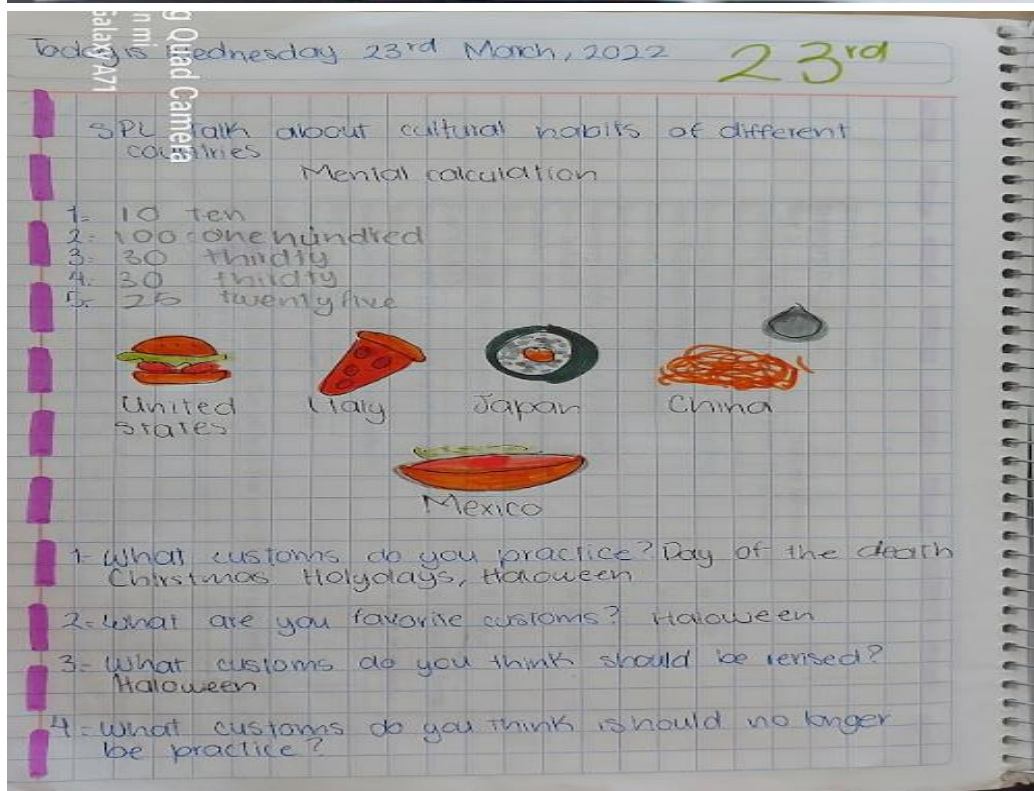 Today is Wednesday 23rd March, 2022
23rd
SPL Talk about cultural habits of different
countries
Mental calculation
1= 10 ten
2= 100 one hundred
3= 30 thirdty
4= 30 thirdty
5= 25 twenty five
United
States
Italy
Japan
China
Mexico
1= What customs do you practice? Day of the death
Chirstmas Holydays, Haloween
2= What are you favorite customs? Haloween
3= What customs do you think should be revised?
Haloween
4= What customs do you think should no longer
be practice?
g Quad Camera
n mi
Galaxy A71